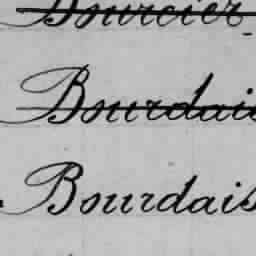 Bourcier
Bourdais
Bourdais